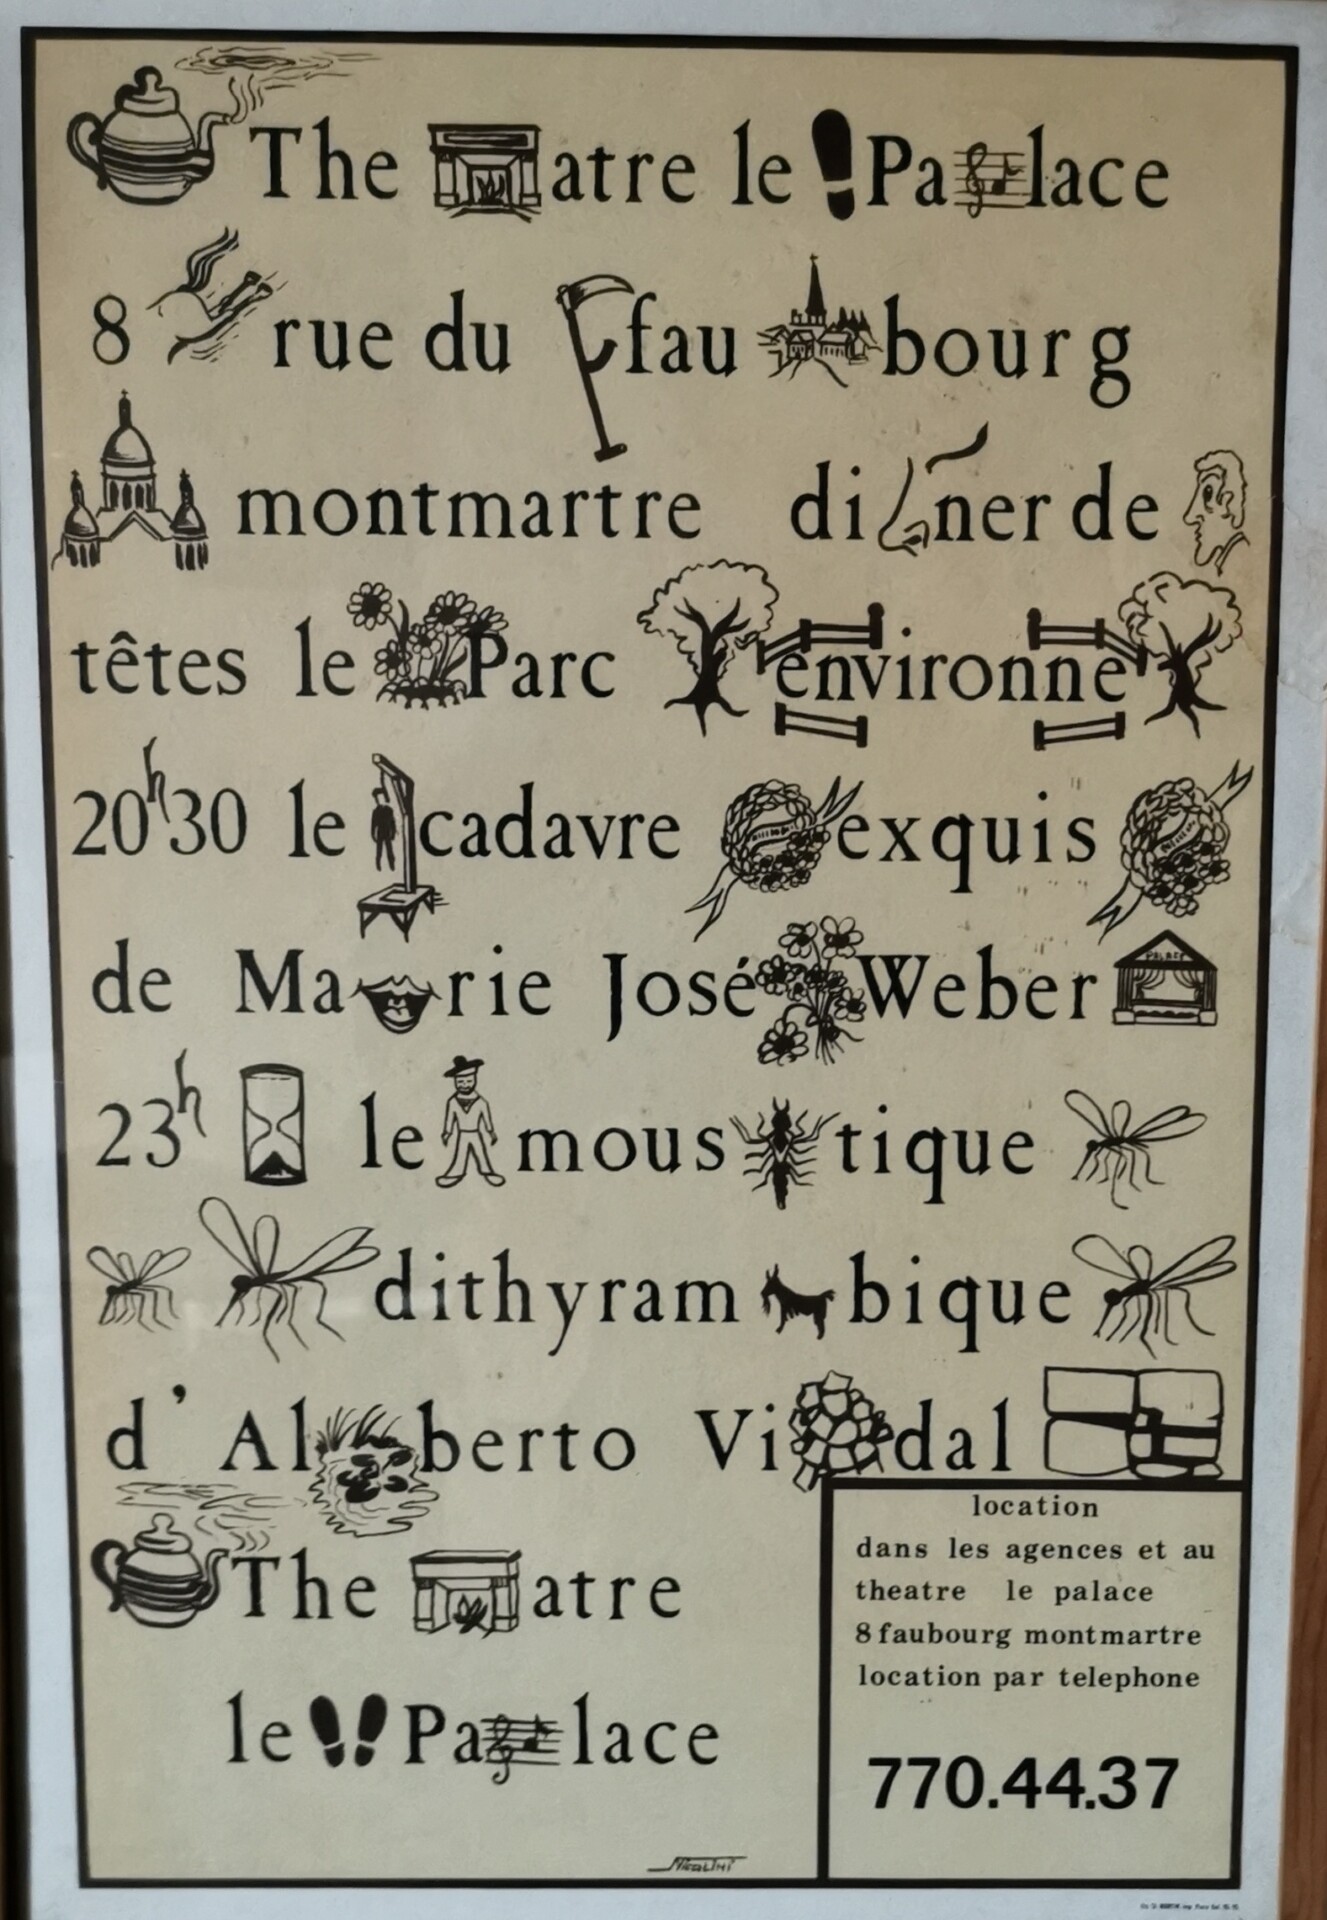 The atre le Palace
8 rue du fau bourg
montmartre di ner de
têtes le Parc environne
20h30 le cadavre exquis
de Ma rie José Weber
PALACE
23h le mous tique
dithyram bique
d'Al berto Vi dal
The atre
le Pa lace
location
dans les agences et au
theatre le palace
8 faubourg montmartre
location par telephone
770.44.37